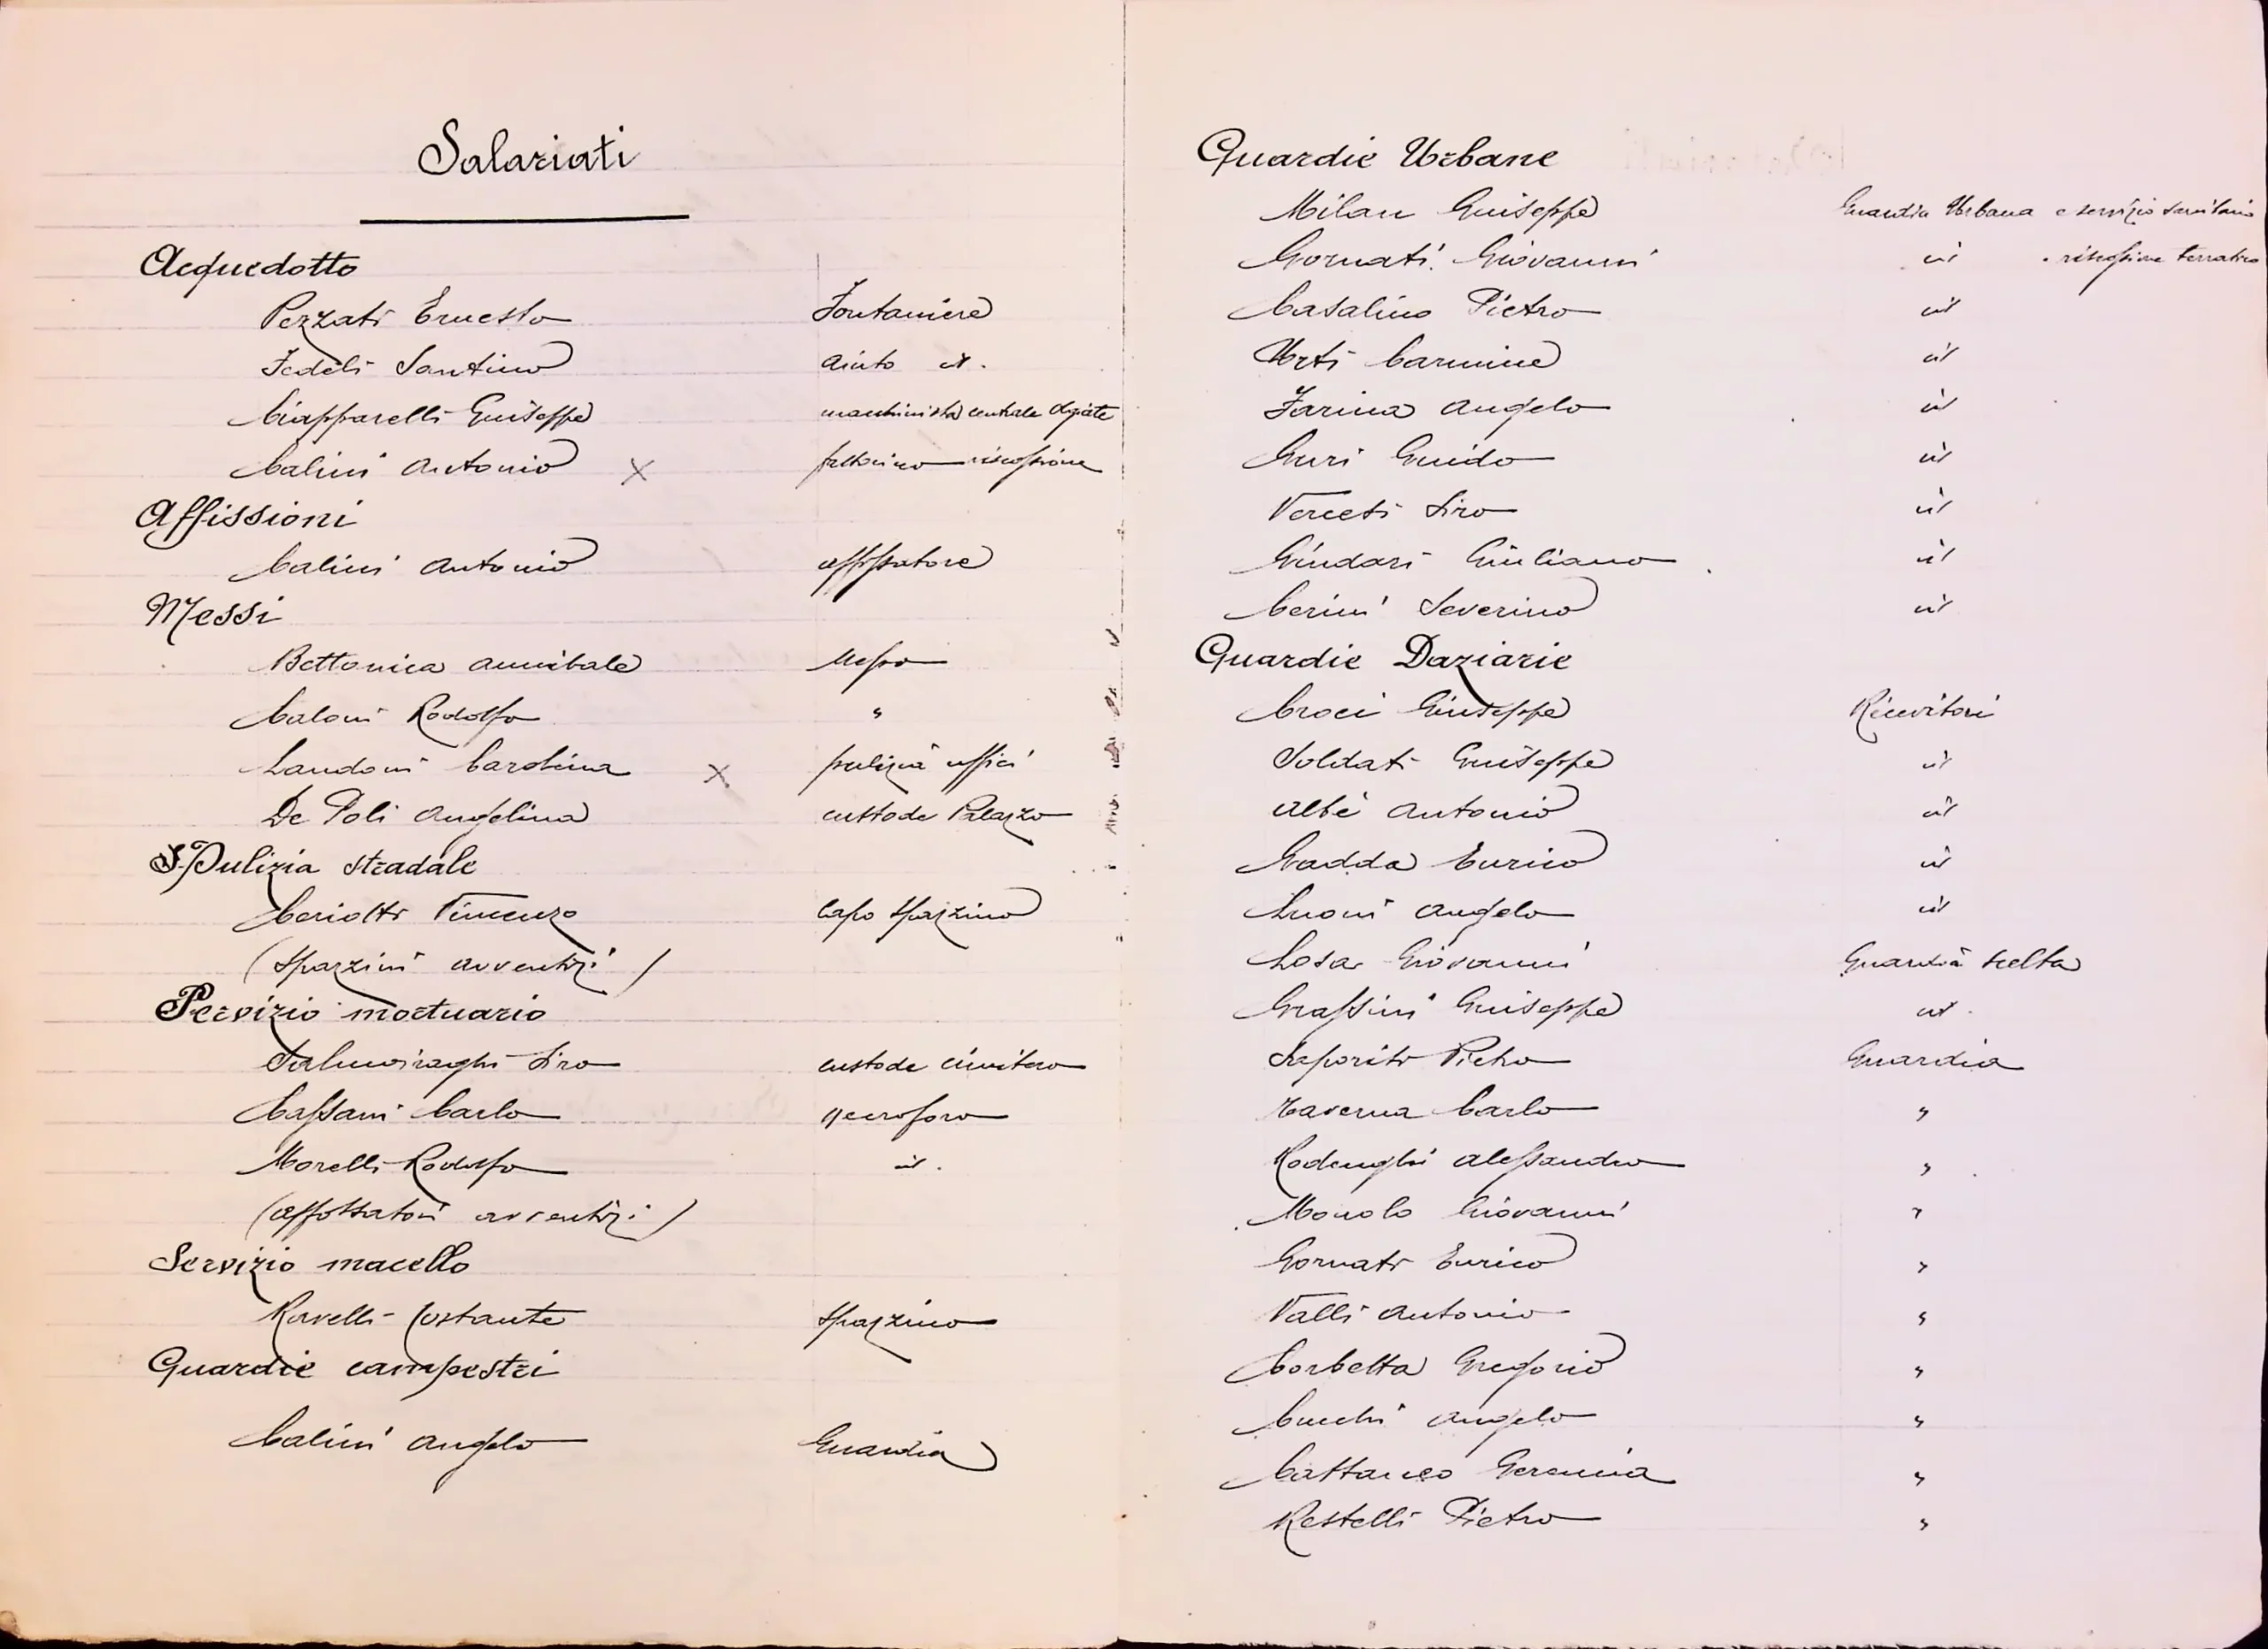 Salariati
Acquedotto
Pezzati Ernesto Fontaniere
Fedeli Santino aiuto id.
Ciapparelli Giuseppe macchinista centrale Olgiate
Calini Antonio x fattorino riscossione
Affissioni
Calini Antonio affissatore
Messi
Bettonica Annibale Messo
Caloni Rodolfo "
Landoni Carolina x pulizia uffici
De Poli Angelina custode Palazzo
Pulizia stradale
Ceriotti Vincenzo Capo spazzino
(spazzini avventizi)
Servizio mortuario
Salmoiraghi Siro custode cimitero
Cassani Carlo necroforo
Morelli Rodolfo id.
(affossatori avventizi)
Servizio macello
Ravelli Costante spazzino
Guardie campestri
Calini Angelo Guardia
Guardie Urbane
Milan Giuseppe Guardia Urbana e servizio sanitario
Gornati Giovanni id • riscossione
Casalino Pietro id
Urti Carmine id
Farina Angelo id
Curi Guido id
Verceti Siro id
Gindari Giuliano id
Cerini Severino id
Guardie Daziarie
Croci Giuseppe Ricevitori
Soldati Giuseppe id
Albè Antonio id
Gadda Enrico id
Luoni Angelo id
Losa Giovanni Guardia scelta
Grassini Giuseppe id.
Saporiti Pietro Guardia
Taverna Carlo "
Rodenghi Alessandro "
Monolo Giovanni "
Gornati Enrico "
Valli Antonio "
Corbetta Gregorio "
Cucchi Angelo "
Cattaneo Geremia "
Restelli Pietro "